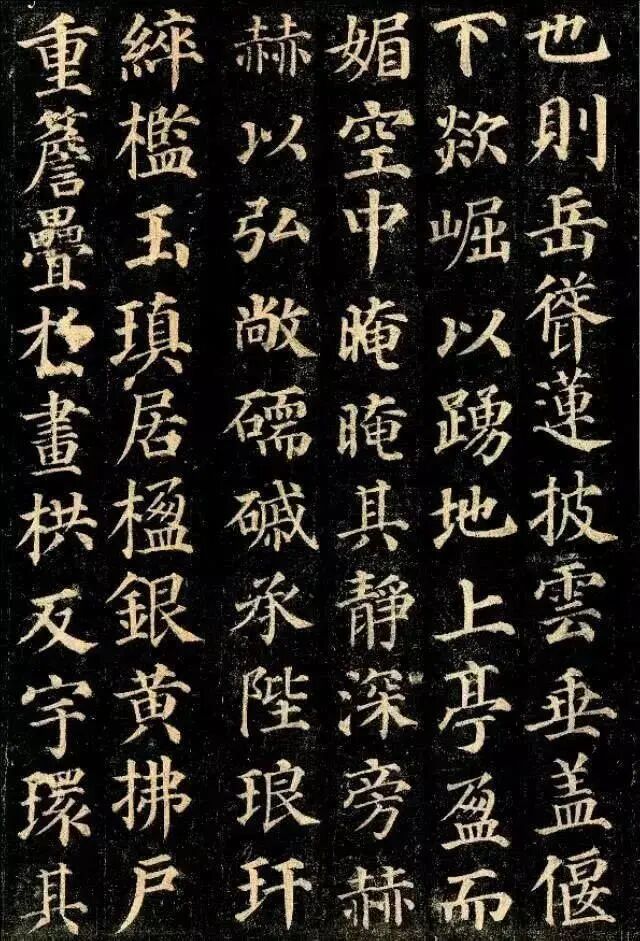 也則岳聳蓮披雲垂盖偃
下欻崛以踴地上亭盈而
媚空中晻晻其靜深旁赫
赫以弘敞礝磩承陛琅玕
綷檻玉瑱居楹銀黃拂戶
重簷疊扵畫栱反宇環其